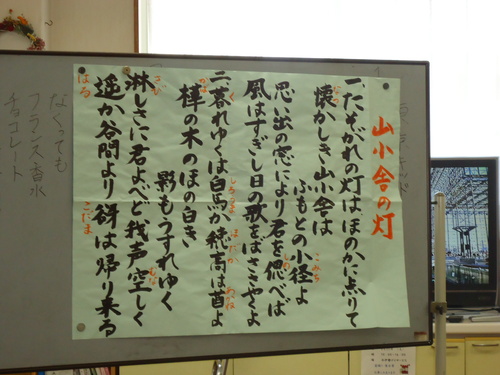 山小舎の灯
一、たそがれの灯はほのかに点りて
懐かしき山小舎は
ふもとの小径よ
こみち
思い出の窓により君を偲べば
しの
風はすぎし日の歌をばささやくよ
二、暮れゆくは白馬か穂高は茜よ
く ほだか あかね
樺の木のほの白き
影もうすれゆく
淋しさに君よべど我声空しく
さび むな
遥か谷間より谺は帰り来る
はる こだま
なくっても
フランス香水
チョコレート